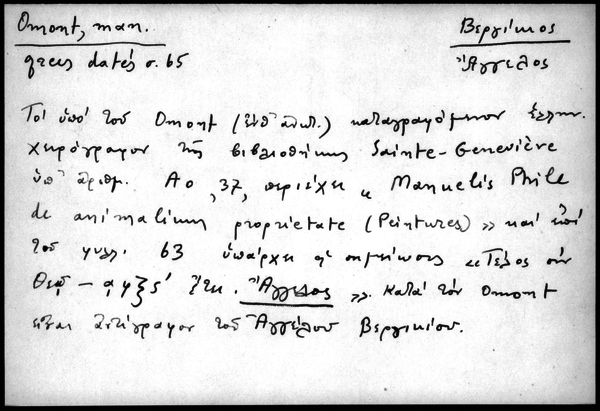 Omont, man.
grecs datés σ. 65
Βεργίκιος
Ἄγγελος
Τὸ ὑπὸ τοῦ Omont (ἐνθ' ἀνωτ.) καταγραφόμενον ἑλλην.
χειρόγραφον τῆς βιβλιοθήκης Sainte-Geneviève
ὑπ' ἀριθμ. Ao, 37, περιέχει « Manuelis Phile
de animalium proprietate (Peintures) » καὶ ἐπὶ
τοῦ φυλλ. 63 ὑπάρχει ἡ σημείωσις « Τέλος σὺν
Θεῷ – αφξς' ἔτει. Ἄγγελος ». Κατὰ τὸν Omont
εἶναι ἀντίγραφον τοῦ Ἀγγέλου Βεργικίου.